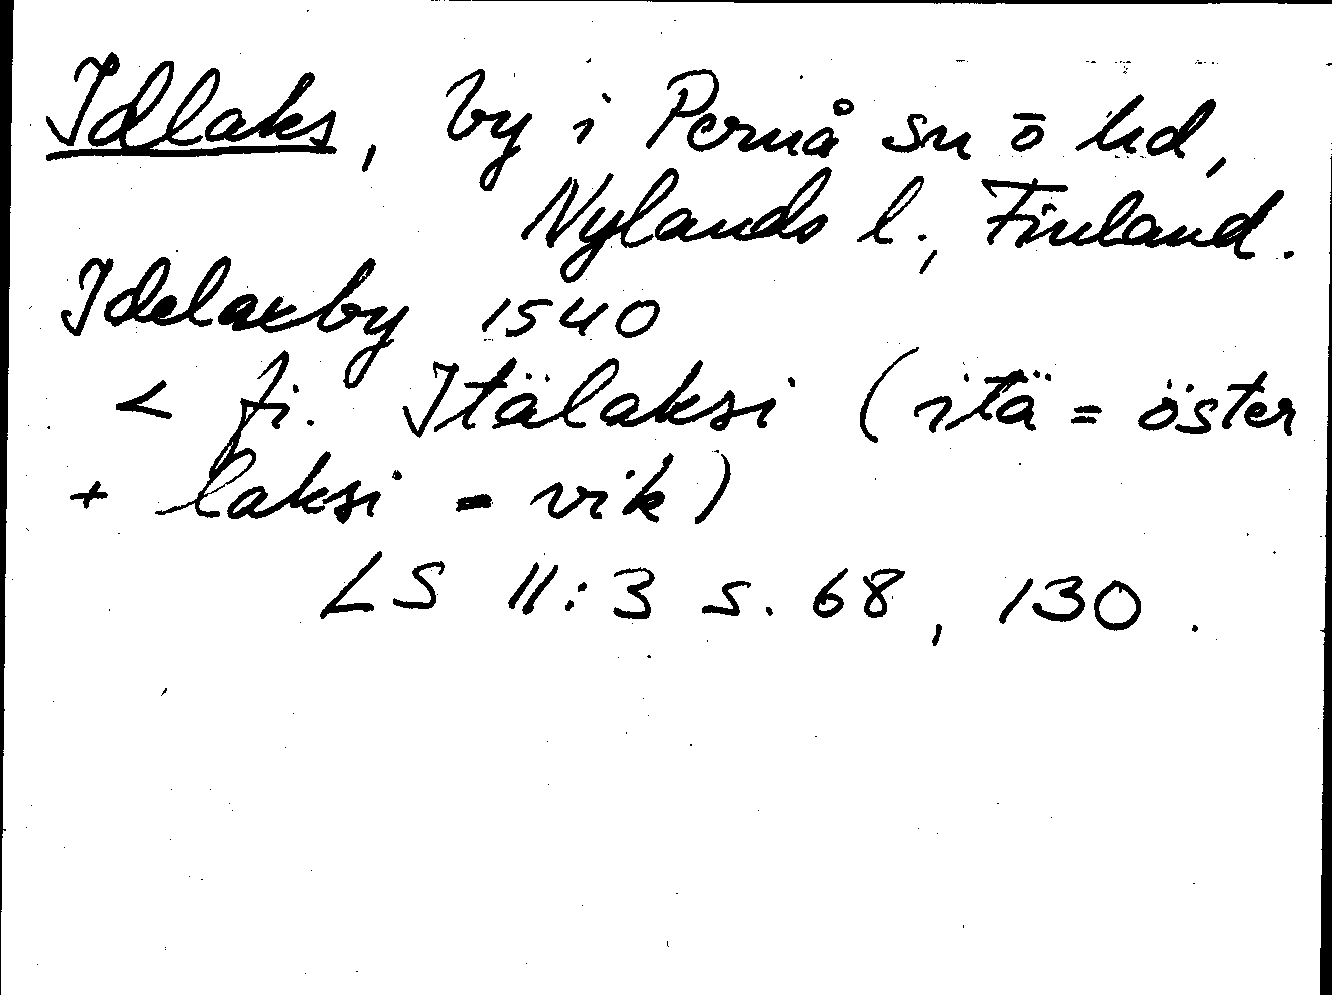 Idlaks, by i Pernå sn ö hd,
Nylands l., Finland.
Idelaxby 1540
< fi. Itälaksi (itä = öster
+ laksi = vik)
LS 11:3 s. 68, 130.